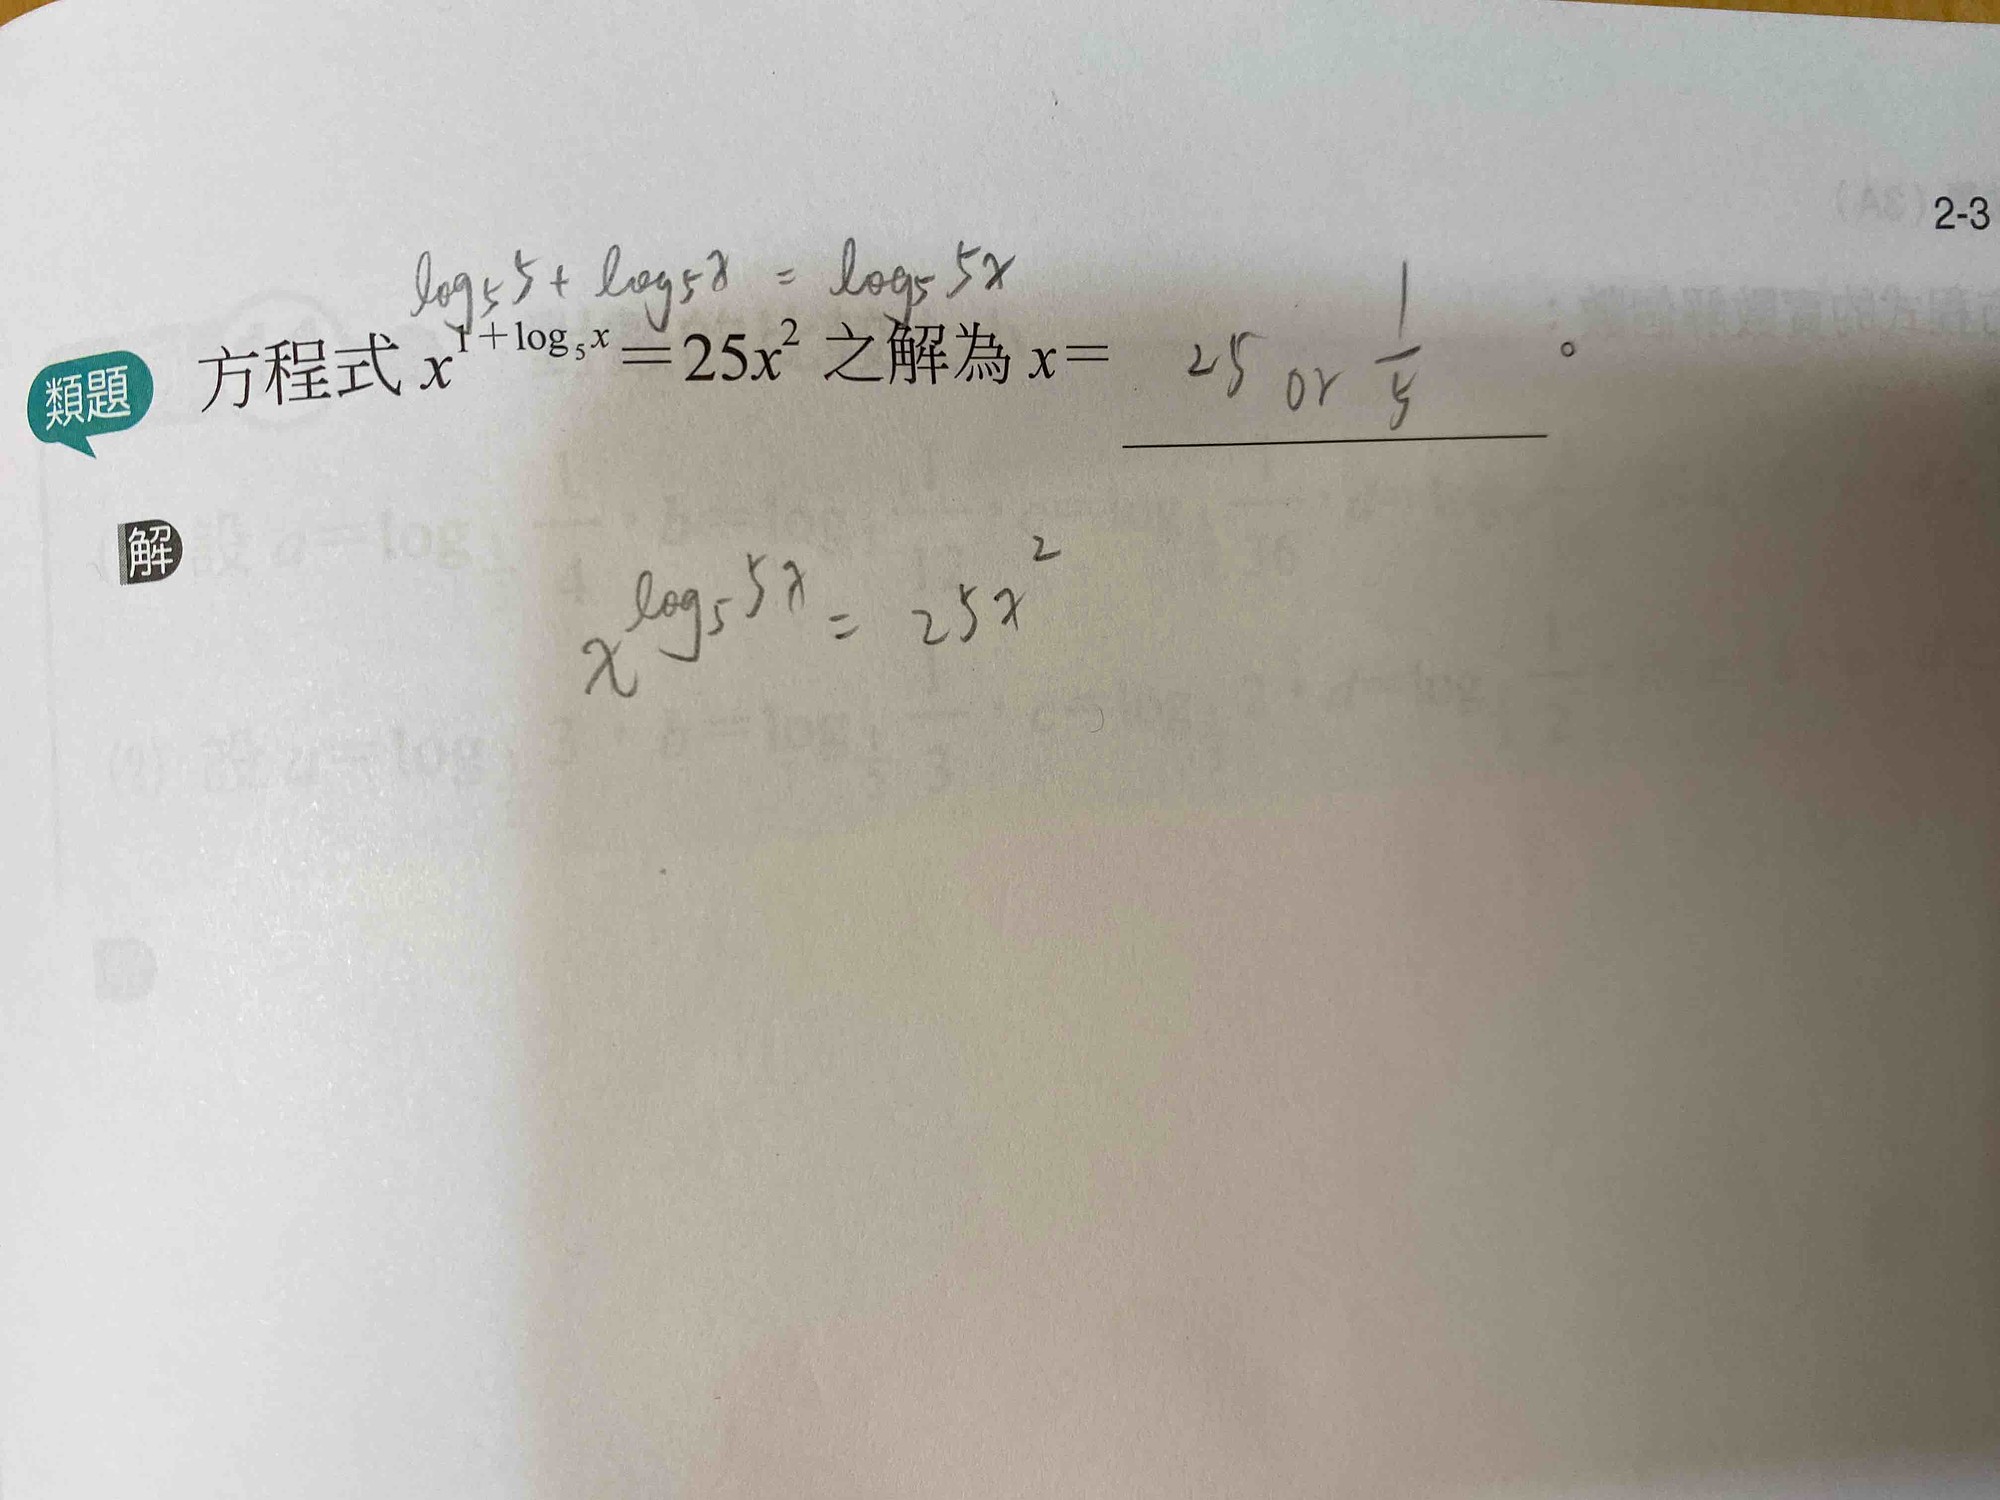 2-3
log₅5 + log₅x = log₅5x
類題 方程式 x^{1+log₅x}=25x² 之解為 x= 25 or 1/5 。
解
x^{log₅5x} = 25x²